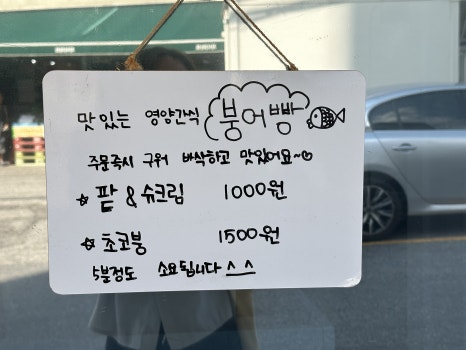 맛있는 영양간식 붕어빵
주문즉시 구워 바삭하고 맛있어요~♡
☆ 팥 & 슈크림 1000원
☆ 초코붕 1500원
5분정도 소요됩니다 ^^